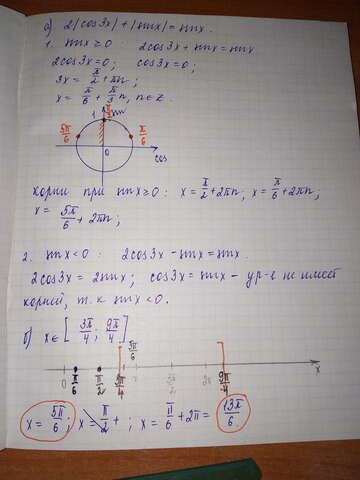 а) 2|cos3x| + |sinx| = sinx.
1. sinx ≥ 0: 2cos3x + sinx = sinx
2cos3x = 0; cos3x = 0;
3x = π/2 + πn;
x = π/6 + π/3 n, n ∈ Z.
1 π/2 sin
5π/6 π/6
0 cos
корни при sinx ≥ 0: x = π/2 + 2πn; x = π/6 + 2πn;
x = 5π/6 + 2πn;
2. sinx < 0: 2cos3x - sinx = sinx.
2cos3x = 2sinx; cos3x = sinx - ур-е не имеет
корней, т.к sinx < 0.
б) x ∈ [3π/4; 9π/4]
5π/6
0 π/6 π/2 3π/4 π 9π/4 x
x = 5π/6; x = π/2 + ; x = π/6 + 2π = 13π/6.